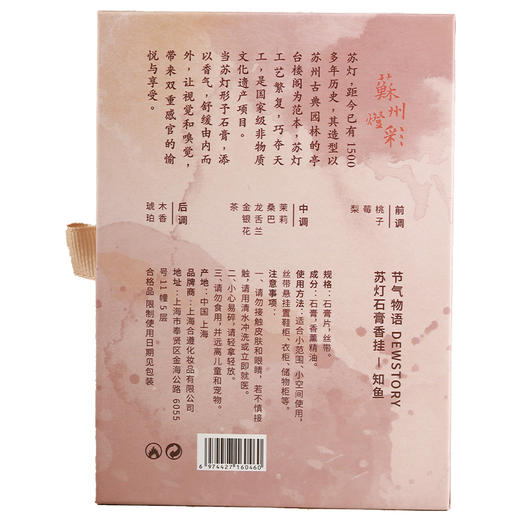 蘇州
燈彩
苏灯，距今已有1500
多年历史，其造型以
苏州古典园林的亭
台楼阁为范本，苏灯
工艺繁复，巧夺天
工，是国家级非物质
文化遗产项目。
当苏灯形于石膏，添
以香气，舒缓由内而
外，让视觉和嗅觉，
带来双重感官的愉
悦与享受。
前调
桃子
莓
梨
中调
茉莉
桑巴
龙舌兰
金银花
茶
后调
木香
琥珀
节气物语 DEWSTORY
苏灯石膏香挂－知鱼
规格：石膏片，丝带。
成分：石膏，香薰精油。
使用方法：适合小范围、小空间使用，
丝带悬挂置鞋柜、衣柜、储物柜等。
注意事项：
一、请勿接触皮肤和眼睛，若不慎接
触，请用清水冲洗或立即就医。
二、小心易碎，请轻拿轻放。
三、请勿食用，并远离儿童和宠物。
产地：中国 上海
品牌商：上海合遵化妆品有限公司
地址：上海市奉贤区金海公路 6055
号 11 幢 5 层
合格品 限制使用日期见包装
6 974427 160460